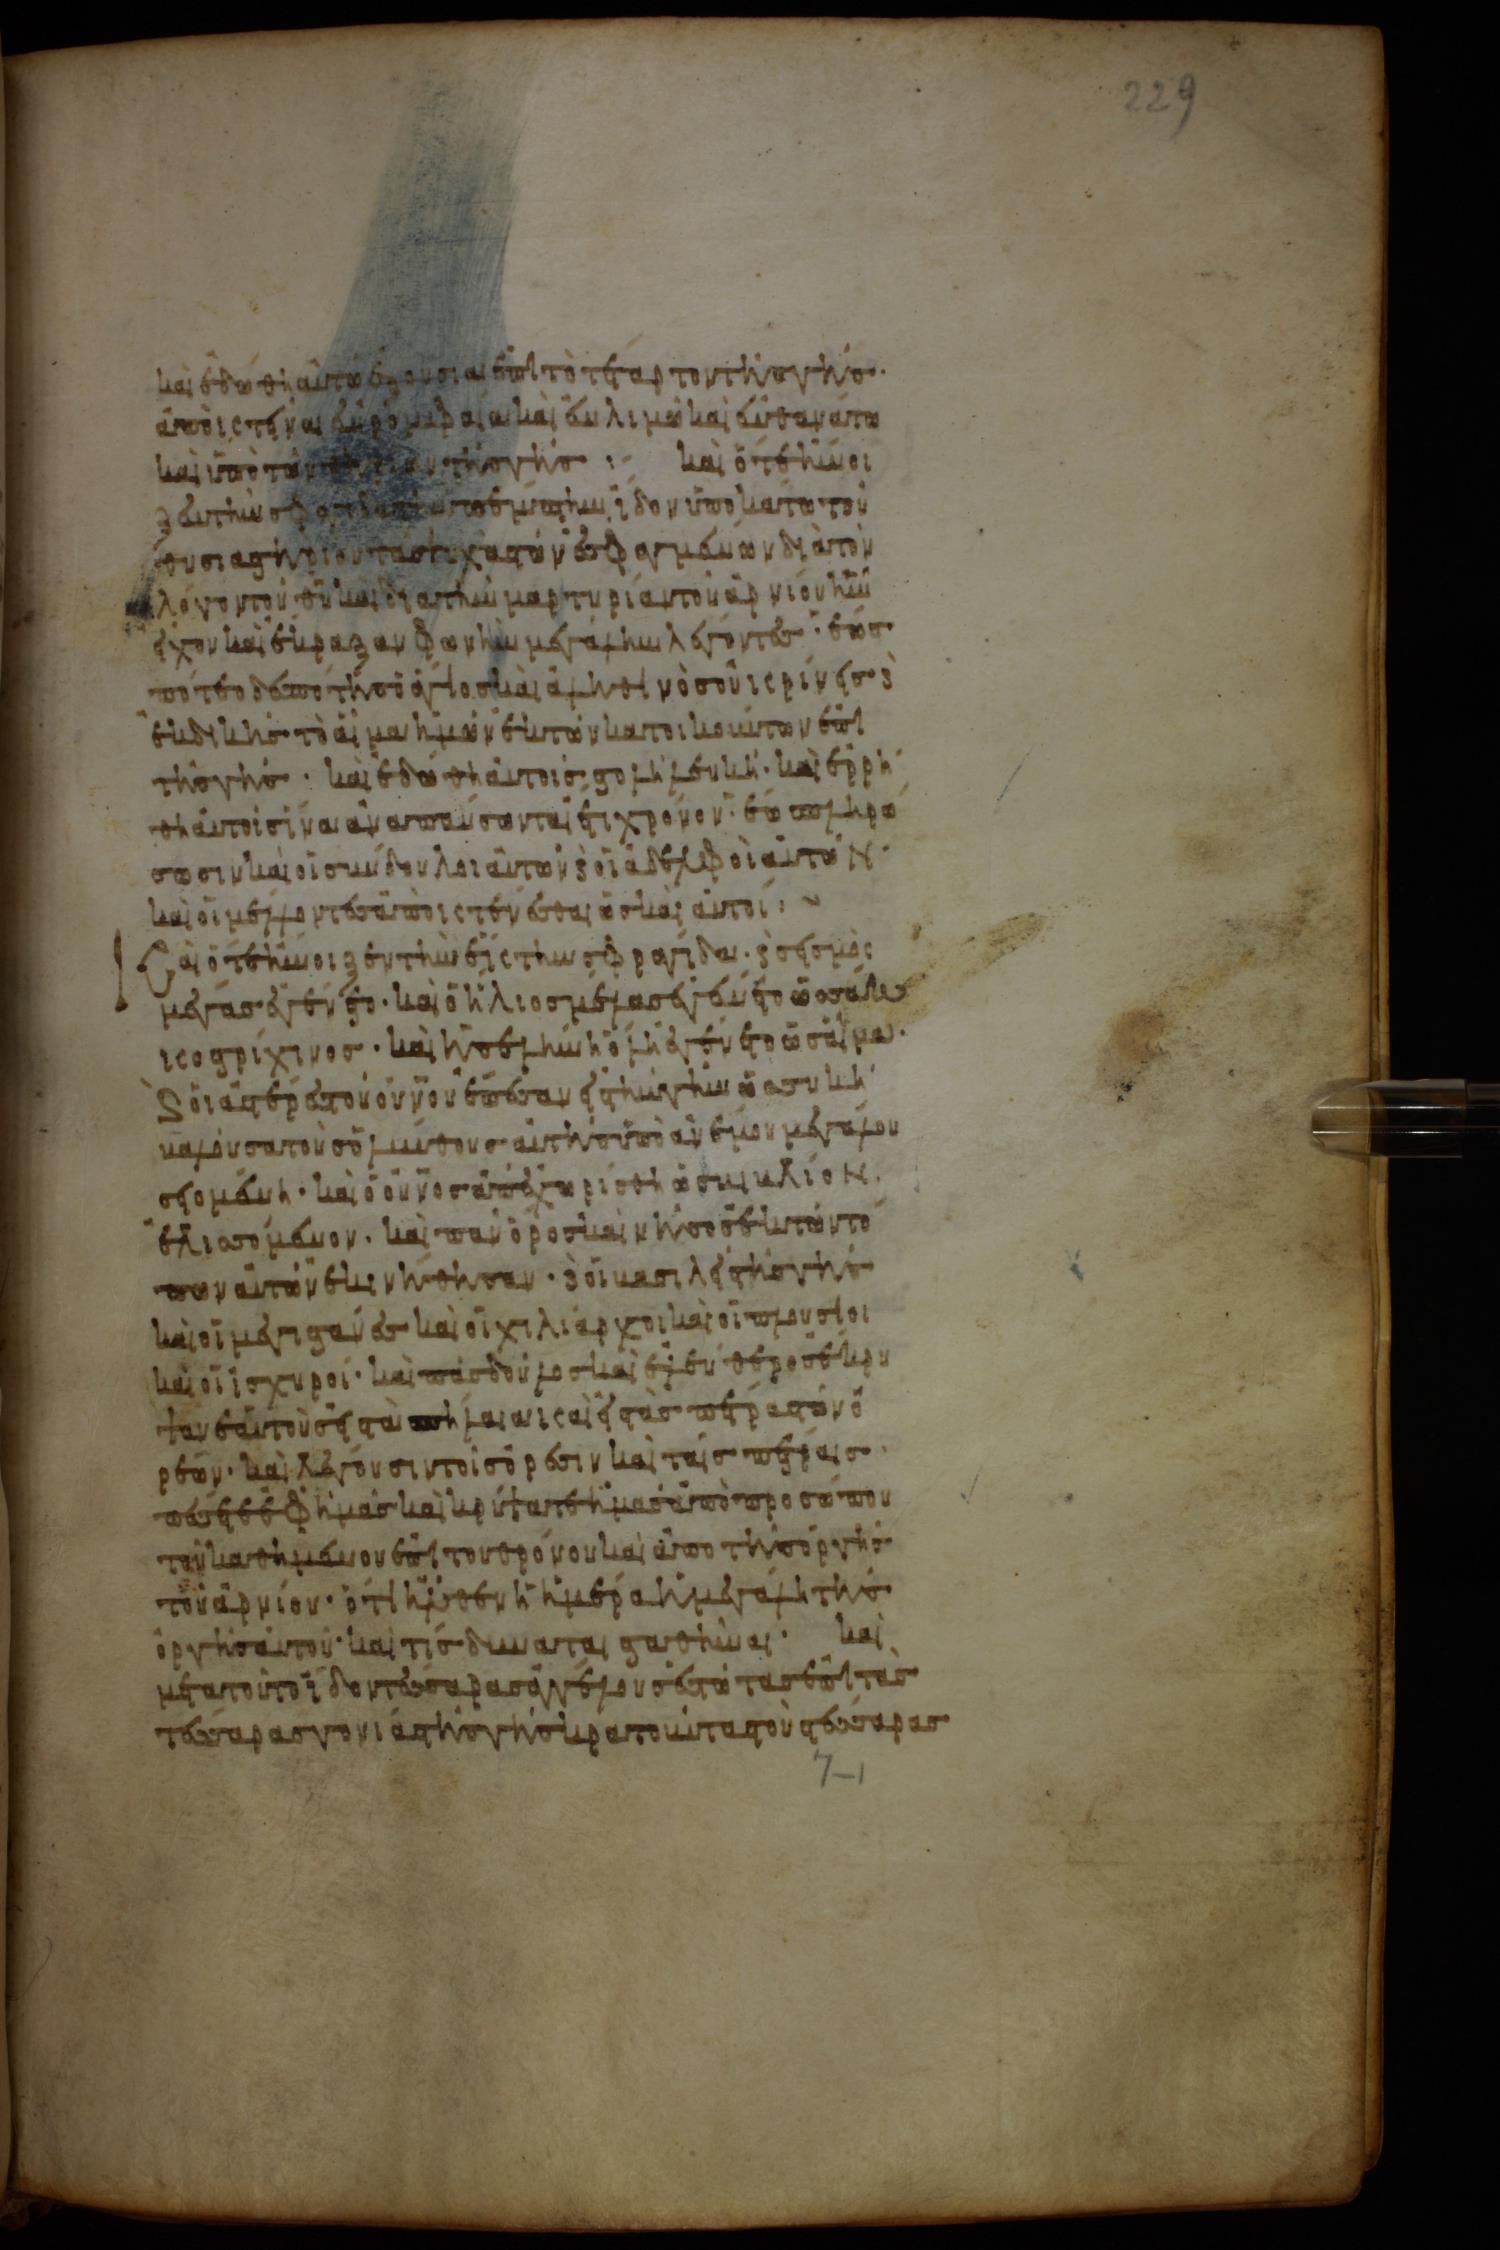 229
καὶ ἐδώθη αὐτῶ ἐξουσία ἐπὶ τὸ τέταρτον τῆς γῆς·
ἀποκτεῖναι ἐν ῥομφαία καὶ ἐν λιμῶ καὶ ἐν θανάτω
καὶ ὑπὸ τῶν θηρίων τῆς γῆς :~ καὶ ὅτε ἤνοι
ξεν τὴν σφραγίδα τὴν πέμπτην ἴδον ὑποκάτω τοῦ
θυσιαστηρίου τὰς ψυχὰς τῶν ἐσφαγμένων διὰ τὸν
λόγον τοῦ θῦ καὶ διὰ τὴν μαρτυρίαν τοῦ ἀρνίου ἣν
εἶχον καὶ ἔκραξαν φωνὴν μεγάλην λέγοντες· ἕως
πότε ὁ δεσπότης ὁ ἅγιος καὶ ἀληθινὸς οὐ κρίνεις ϗ
ἐκδικῆς τὸ αἷμα ἡμῶν ἐκ τῶν κατοικούντων ἐπὶ
τῆς γῆς· καὶ ἐδώθη αὐτοῖς στολὴ λευκή· καὶ ἐρρή
θη αὐτοῖς ἵνα ἀναπαύσωνται ἔτι χρόνον· ἕω πληρώ
σωσιν καὶ οἱ σύνδουλοι αὐτῶν ϗ οἱ ἀδελφοὶ αὐτῶν·
καὶ οἱ μέλλοντες ἀποκτένεσθαι ὡς καὶ αὐτοί :~
Καὶ ὅτε ἤνοιξεν τὴν ἕκτην σφραγίδα· ϗ σεσμὸς
μέγας ἐγένετο· καὶ ὁ ἥλιος μέλας ἐγένετο ὡς σάκ
κος τρίχινος· καὶ ἡ σελήνη ὅλη ἐγένετο ὡς αἷμα·
ϗ οἱ ἀστέρες τοῦ οὐνοῦ ἔπεσαν εἰς τὴν γῆν ὡς συκῆ
βαλοῦσα τοὺς ὀλύνθους αὐτῆς ὑπὸ ἀνέμου μεγάλου
σειομένη· καὶ ὁ οὐνος ἀπεχωρίσθη ὡς βιβλίον
ἑλισσόμενον· καὶ παν ὄρος καὶ νῆσος ἐκ τῶν τό
πων αὐτῶν ἐκινήθησαν· ϗ οἱ βασιλεῖς τῆς γῆς
καὶ οἱ μεγιστάνες καὶ οἱ χιλίαρχοι καὶ οἱ πλούσιοι
καὶ οἱ ἰσχυροί· καὶ πᾶς δοῦλος καὶ ἐλεύθερος ἔκρυ
ψαν ἑαυτοὺς εἰς τὰ σπήλαια καὶ εἰς τὰς πέτρας τῶν ὀ
ρέων· καὶ λέγουσιν τοῖς ὄρεσιν καὶ ταῖς πέτραις·
πέσετε ἐφ ἡμᾶς καὶ κρύψατε ἡμᾶς ἀπὸ προσώπου
τοῦ καθημένου ἐπὶ τοῦ θρόνου καὶ ἀπο τῆς ὀργῆς
τοῦ ἀρνίου· ὅτι ἦλθεν ἡ ἡμέρα ἡ μεγάλη τῆς
ὀργῆς αὐτοῦ· καὶ τίς δύναται σταθῆναι· καὶ
μετα τοῦτο ἴδον τέσσαρας ἀγγέλους ἑστώτας ἐπὶ τὰς
τέσσαρας γονίας τῆς γῆς κρατοῦντας τοὺς τέσσαρας
7-1